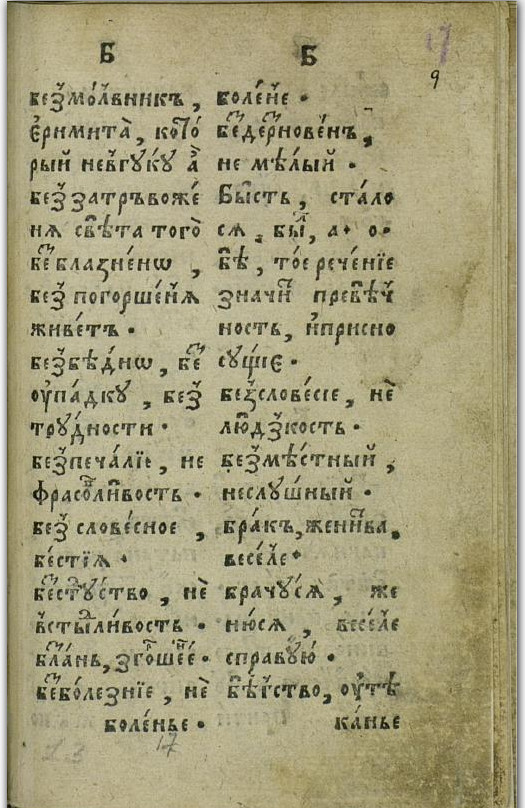 Б
безмо́лвник, 
єримита̀, кото́
рый невгуку а҆
без затрвоже́
ня свѣта того̀
безблазне́нѡ,
без погорше́ня
живе́тъ.
безбѣ́днѡ, без
ѹпа́дку, без
тру́дности.
безпеча́лїе, не
фрасобли́вость.
без слове́сное,
бе́стїѧ.
безсту́дство, нѐ
встыдли́вость.
блазнь, згоршеꙗе.
безболе́знїе, нѐ
боле́нье.
Б
боле́нїе.
бездерзнове́нъ,
не смѣ́лый.
Бысть, ста́ло
сѧ, бы́лъ, а. о.
бѣ, то́е рече́нїе
значи́т превѣч
ность, и҆присно
су́щїе.
безслове́сїе, нѐ
лю́дзкость.
безмѣ́стный,
неслу́шный.
бра́къ, жени́тва,
весе́ле.
брачу́сѧ, же
ню́сѧ, весе́ле
справую́.
бѣ́гство, ѹтѣ
ка́нье
17
9
13
17